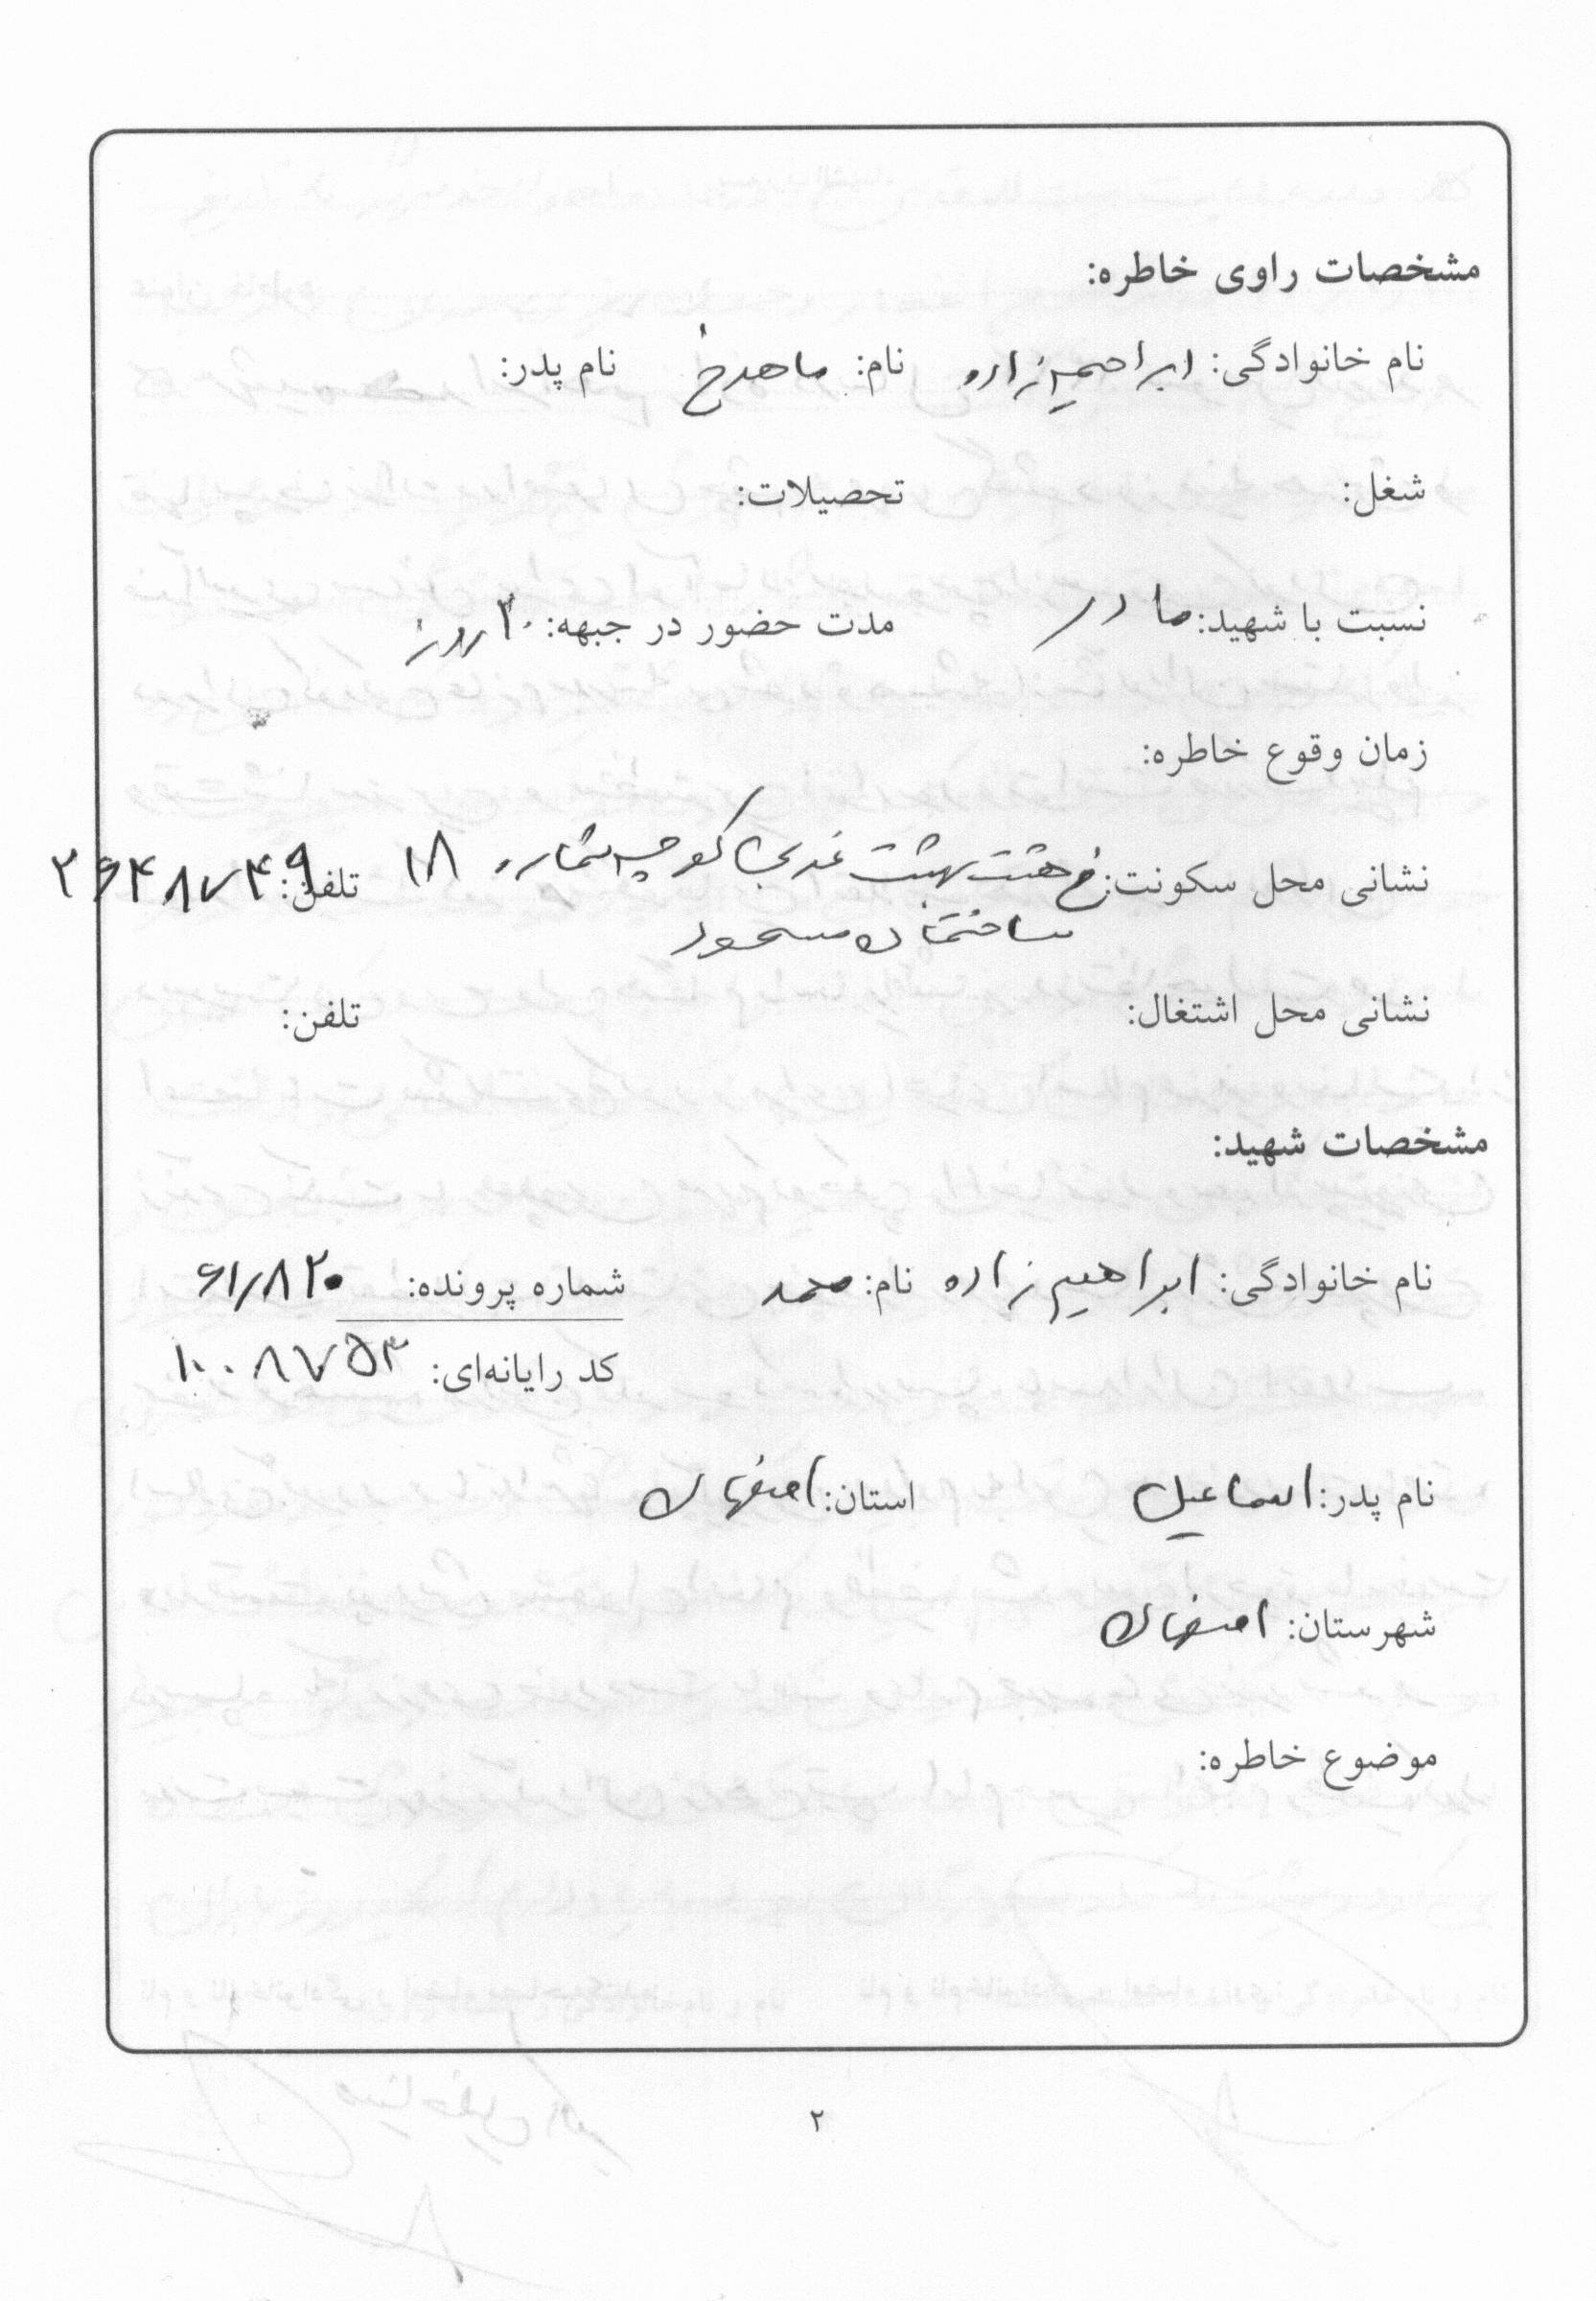 مشخصات راوی خاطره:
نام خانوادگی: ابراهیم زاده نام: ماهرخ نام پدر:
شغل: تحصیلات:
نسبت با شهید: مادر مدت حضور در جبهه: ۲۰ روز
زمان وقوع خاطره:
نشانی محل سکونت: خ هشت بهشت غربی کوچه شماره ۱۸ تلفن: ۲۶۴۸۷۴۹
ساختمان مسعود
نشانی محل اشتغال: تلفن:
مشخصات شهید:
نام خانوادگی: ابراهیم زاده نام: محمد شماره پرونده: ۶۱/۸۲۰
کد رایانه‌ای: ۱۰۰۸۷۵۳
نام پدر: اسماعیل استان: اصفهان
شهرستان: اصفهان
موضوع خاطره:
۲